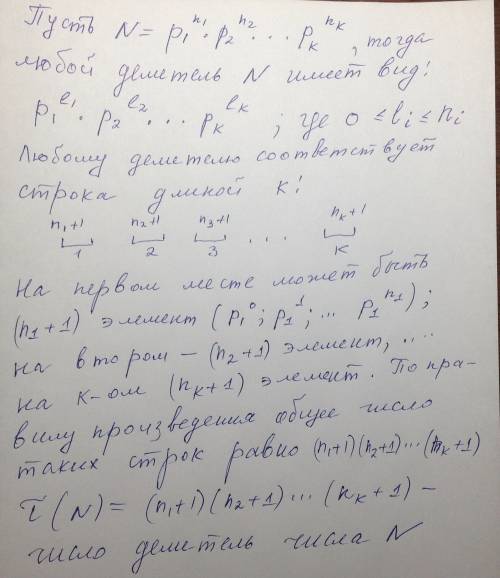 Пусть N = p₁^n₁ · p₂^n₂ · ... p_k^n_k, тогда
любой делитель N имеет вид:
p₁^l₁ · p₂^l₂ · ... p_k^l_k ; где 0 ≤ l_i ≤ n_i
Любому делителю соответствует
строка длиной k:
n₁+1 n₂+1 n₃+1 n_k+1
1 2 3 ... k
На первом месте может быть
(n₁+1) элемент (p₁^0; p₁^1; ... p₁^n₁);
на втором – (n₂+1) элемент, ....
на k-ом (n_k+1) элемент. По пра-
вилу произведения общее число
таких строк равно (n₁+1)(n₂+1)...(n_k+1)
τ(N) = (n₁+1)(n₂+1)...(n_k+1) –
число делитель числа N